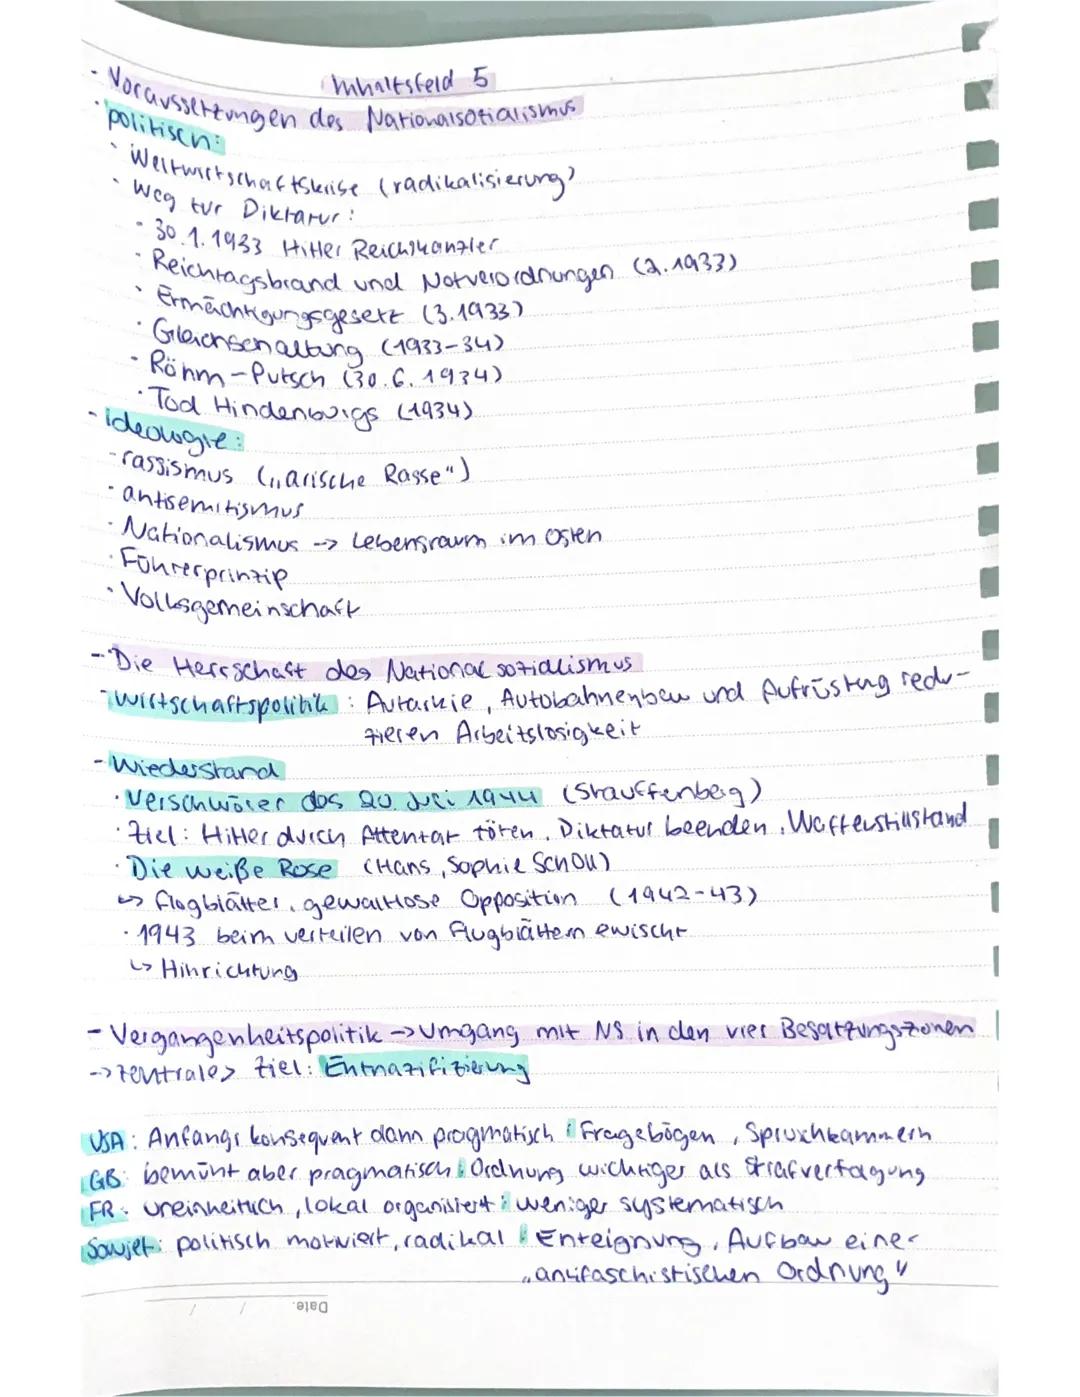 Inhaltsfeld 5
- Voraussetzungen des Nationalsozialismus
· politisch:
· Weltwirtschaftskrise (radikalisierung)
· Weg zur Diktatur:
· 30.1.1933 Hitler Reichskanzler
· Reichtagsbrand und Notverordnungen (2.1933)
· Ermächtigungsgesetz (3.1933)
· Gleichschaltung (1933-34)
· Röhm-Putsch (30.6.1934)
· Tod Hindenburgs (1934)
- ideologie:
- rassismus („arische Rasse")
· antisemitismus
· Nationalismus -> Lebensraum im Osten
· Führerprinzip
· Volksgemeinschaft
- Die Herrschaft des Nationalsozialismus
- Wirtschaftspolitik: Autarkie, Autobahnenbau und Aufrüstung redu-
zieren Arbeitslosigkeit
- Wiederstand
· Verschwörer des 20. Juli 1944 (Stauffenberg)
· Ziel: Hitler durch Attentat töten, Diktatur beenden, Waffenstillstand
· Die weiße Rose (Hans, Sophie Scholl)
↳ flogblätter, gewaltlose Opposition (1942-43)
· 1943 beim verteilen von Flugblättern ewischt
↳ Hinrichtung
- Vergangenheitspolitik -> Umgang mit NS in den vier Besatzungszonen
-> zentrales Ziel: Entnazifizierung
USA: Anfangs konsequent dann pragmatisch: Fragebögen, Spruchkammern
GB: bemüht aber pragmatisch: Ordnung wichtiger als Strafverfolgung
FR: uneinheitlich, lokal organisiert: weniger systematisch
Sowjet: politisch motiviert, radikal: Enteignung, Aufbau einer
„antifaschistischen Ordnung"
Date: